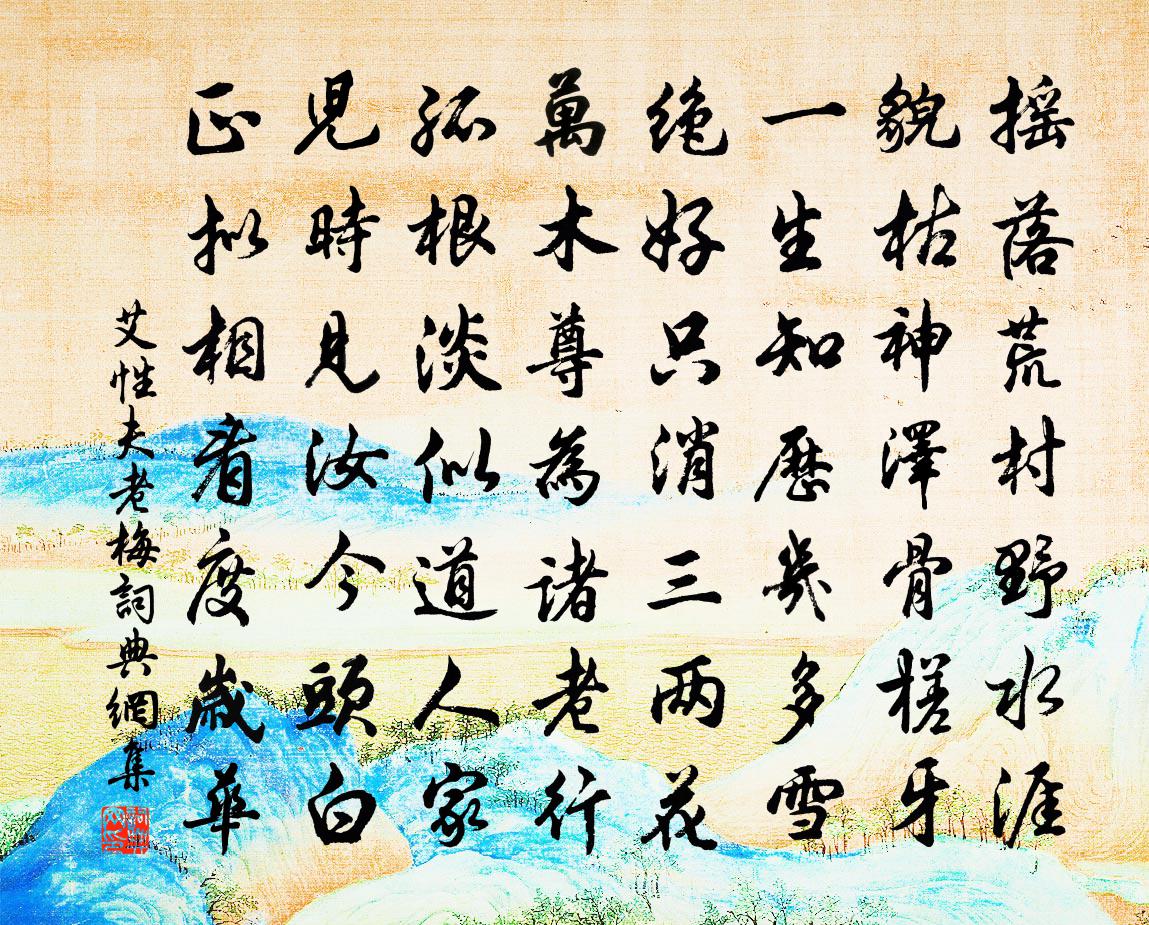 摇落荒村野水涯
貌枯神澤骨槎牙
一生知歷幾多雪
绝好只消三两花
萬木尊為諸老行
孤根淡似道人家
児時見汝今頭白
正拟相看度歲華
艾性夫老梅詞典網集